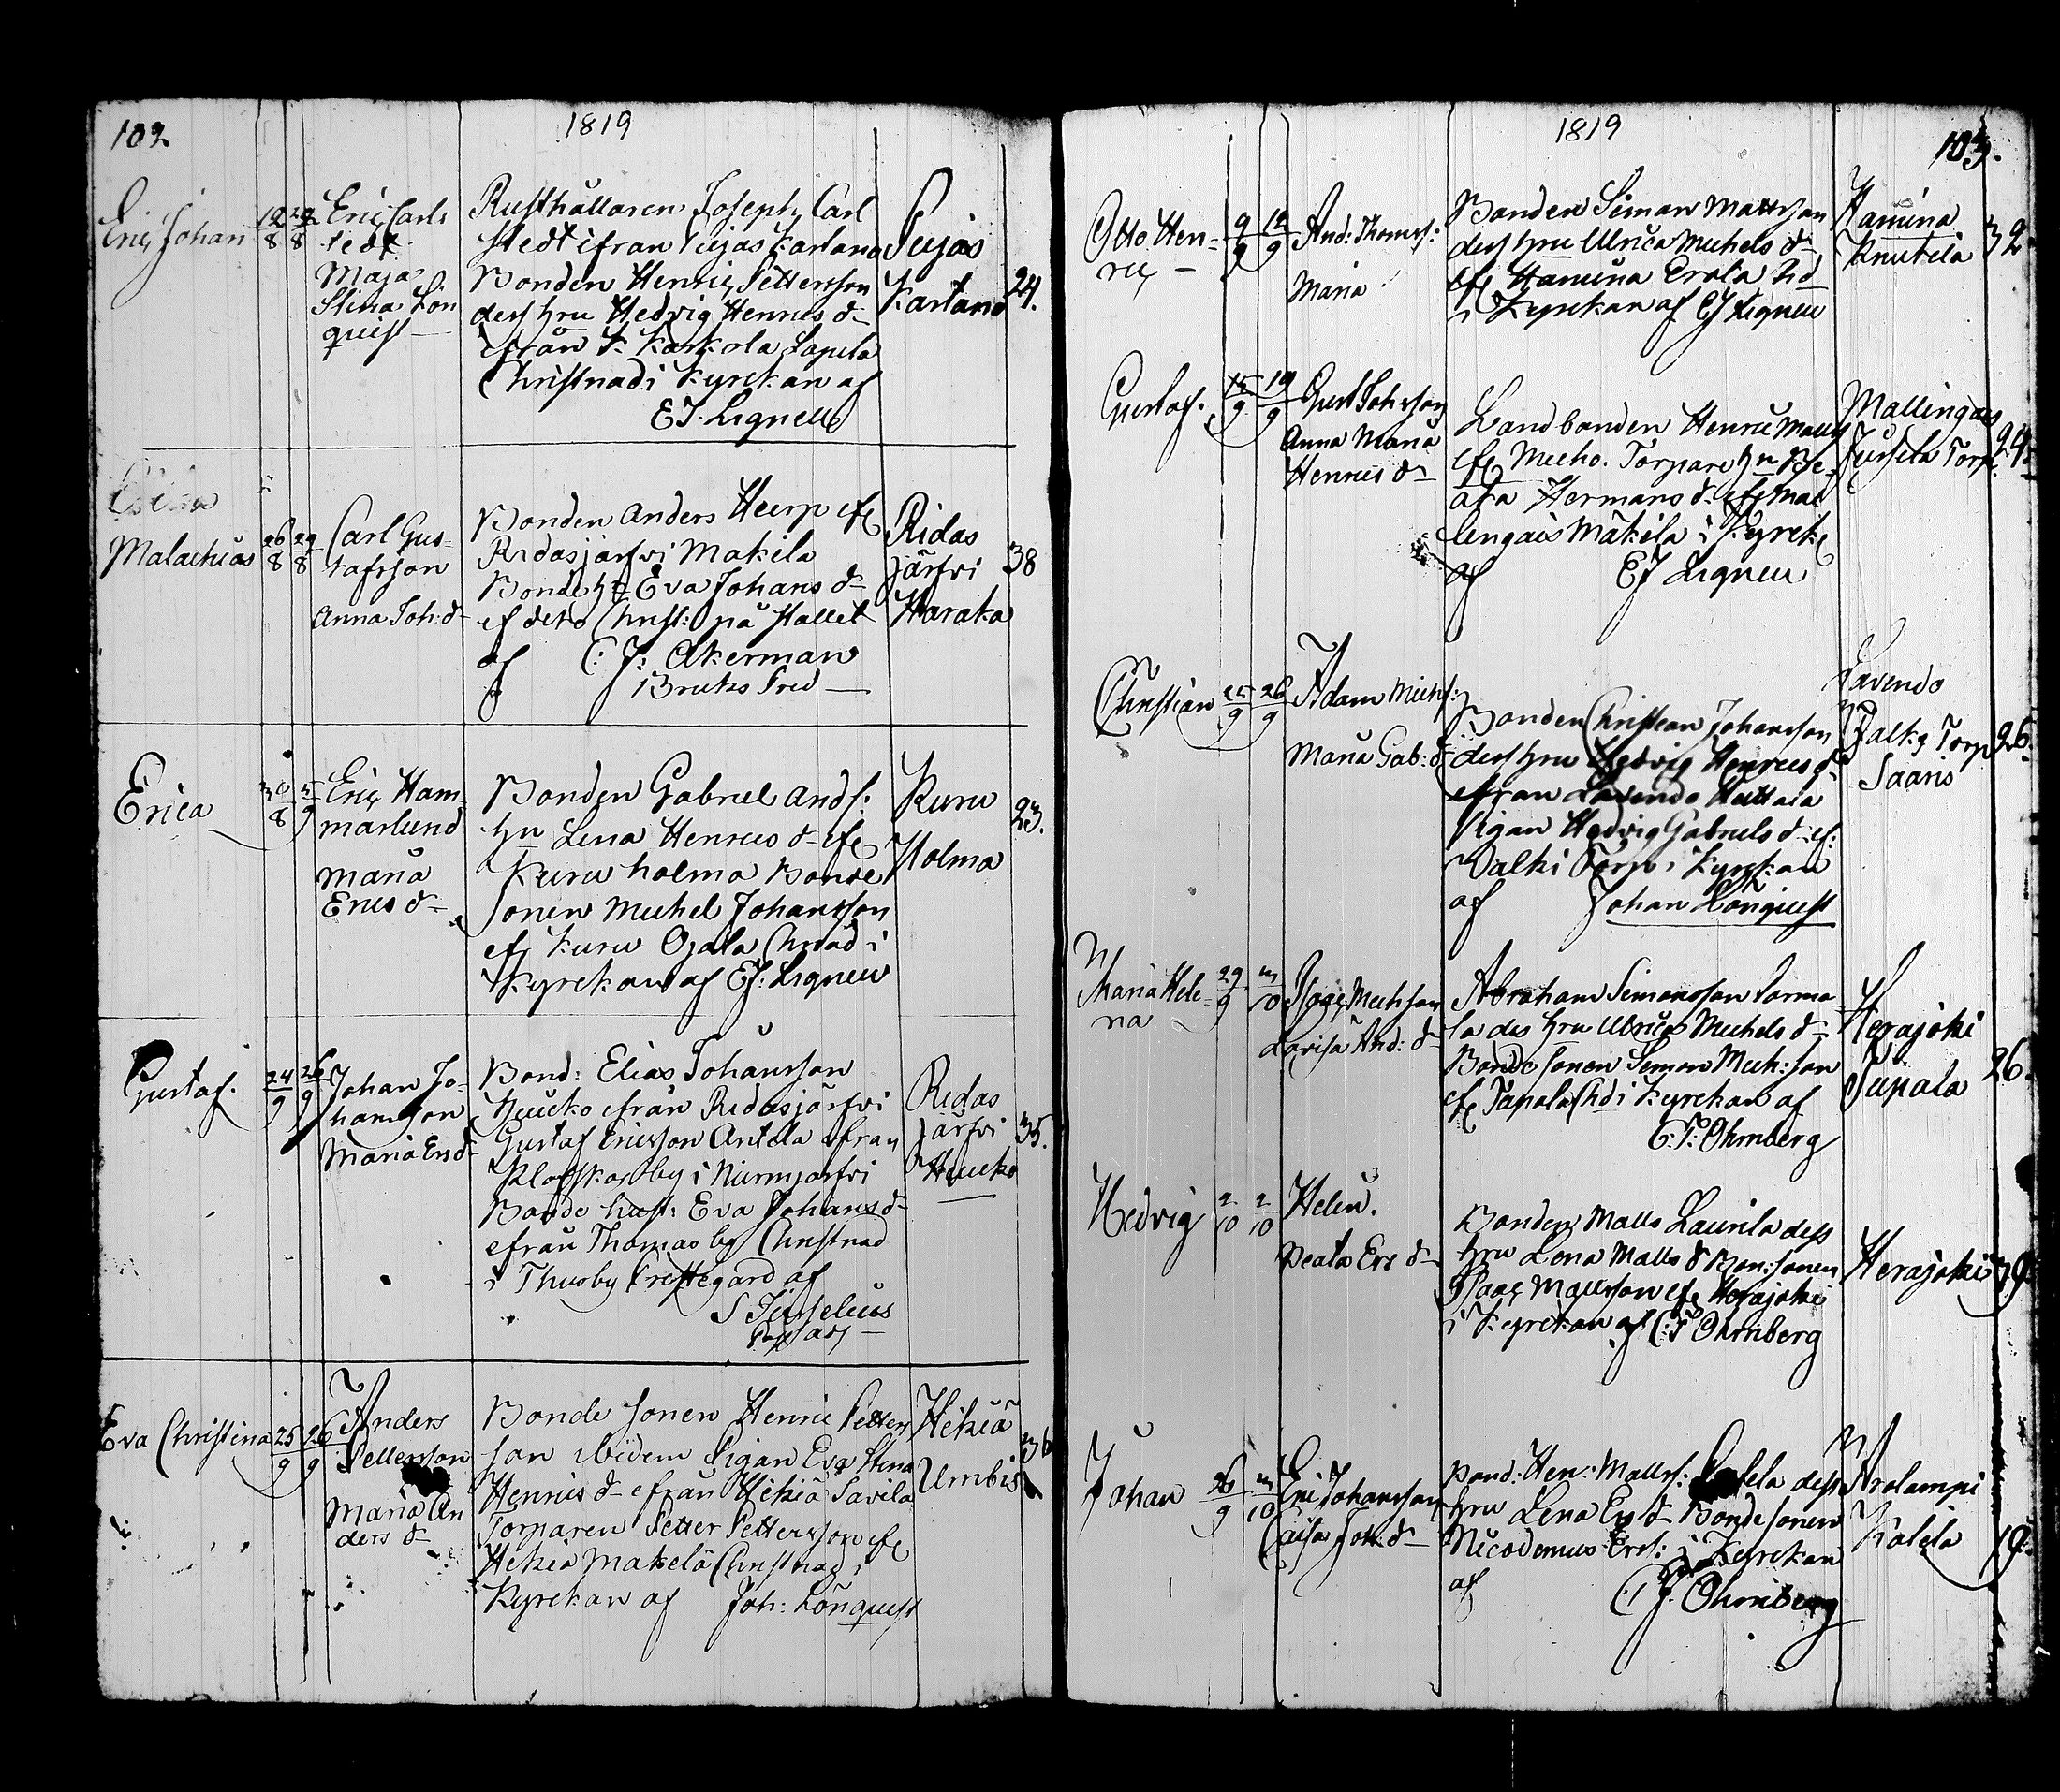 102
1819
Eric Johan 12/8 22/8
Eric Carls
tedt
Maja
Stina Lön
quist
Rusthållaren Joseph Carl
stedt ifrån Pujas Kartano
Bonden Henric Pettersson
dess hru Hedvig Henrics d
ifrån K. Karkola Lapila
Christnad i Kyrckan af
E J. Lignell
Pujas
Kartano
24.
Malachias 26/8 29/8
Carl Gus-
tafsson
Anna Joh: d
Bonden Anders Heerp
Ridasjärfvi Makila
Bonde h Eva Johans d
Christ: på stallet
af C: J: Akerman
Bruks Pred
Ridas
järfvi
Haraka
38
Erica 30/8 5/9
Eric Ham
marlund
Maria
Erics d
Bonden Gabriel Ands:
hn Lena Henrics d
Kuru holma Bonde
sonen Michel Johansson
Kuru Ojala Chnad i
Kyrckan af E J: Lignell
Kuru
Holma
23.
Gustaf. 24/9 26/9
Johan Jo-
hansson
Maria Ers d
Bond: Elias Johansson
Heucko ifrån Ridasjärfvi
Gustaf Ericsson Antola ifran
Klockarby i Nurmijärfvi
Bonde hust: Eva Johans d
ifrån Thomas by Christnad
i Thusby Prestegard af
Ridas
järfvi
Heucko
35.
Eva Christina 25/9 26/9
Anders
Pettersson
Maria An
ders d
Bonde sonen Henric Petters
son ibidem Pigan Eva Stina
Henrics d ifrån Hikiä Savila
Torparen Petter Pettersson
Hikiä Makelä Christnad i
Kyrckan af Joh: Lönquist
Hikiä
Umbis
36
1819
103.
Otto Hen-
ric 9/9 12/9
And: Thomss:
Maria
Bonden Simon Mattsson
dess hru Ulrica Michels d
Hamina Erola
i Kyrckan af E J Lignell
Hamina
Knutila
32
Gustaf. 15/9 19/9
Gust Johsson
Anna Maria
Henrics d
Landbonden Henric Matts
Torpare hn Be-
ata Hermans d Mal
lengais Mäkilä i Kyrck
af E J Lignell
Mallingais
Jussila Torp.
24
Christian 25/9 26/9
Adam Michs:
Maria Gab: d
Bonden Christian Johansson
dess hru Hedvig Henrics d
ifran Lavendo Huttala
Pigan Hedvig Gabriels d
Valki Torp i Kyrckan
af Johan Lönquist
Lavendo
Valki Torp
Saaris
26.
Maria Hele-
na 29/9 3/10
Isaac Michsson
Lovisa And: d
Abraham Simonsson Parma
la des hru Ulrica Michels d
Bonde sonen Simon Mich:son
Tapola Chd i Kyrckan af
C: J: Ohrnberg
Herajoki
26.
Hedvig 2/10 2/10
Helen.
Beata Ers d
Bonden Matts Laurila dess
hru Lena Matts d Bon:sonen
Isaac Mattsson Herajoki
i Kyrckan af C: J Ohrnberg
Herajoki
39
Johan 26/9 3/10
Eric Johansson
Caisa Joh: d
Bond: Hen: Mattss: dess
hru Lena Ers d Bonde sonen
Nicodemus Ers: i Kyrckan
af C: J. Ohrnberg
Arolampi
Kalela
19.